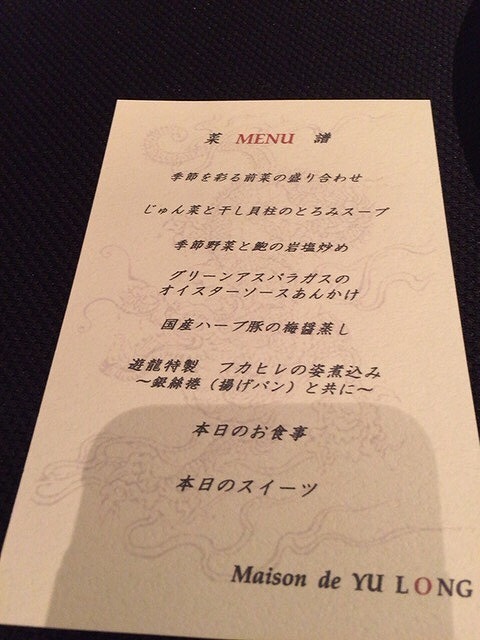 菜 MENU 譜
季節を彩る前菜の盛り合わせ
じゅん菜と干し貝柱のとろみスープ
季節野菜と鮑の岩塩炒め
グリーンアスパラガスの
オイスターソースあんかけ
国産ハーブ豚の梅醤蒸し
遊龍特製 フカヒレの姿煮込み
～銀絲捲（揚げパン）と共に～
本日のお食事
本日のスイーツ
Maison de YU LONG